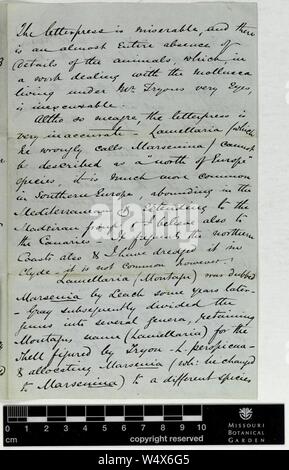 The letterpress is miserable, and there
is an almost entire absence of
details of the animals, which in
a work dealing with the mollusca
living under Mr. Tryons very Eyes,
is inexcusable.
Altho so meagre, the letterpress is
very inaccurate Lamellaria (which
he wrongly calls Marsenina) cannot
be described as a "north of Europe"
species, it is much more common
in Southern Europe, abounding in the
Mediterranean & extending to the
Madeiran group, & I believe also to
the Canaries it the northern
Coasts also & I have dredged it in
Clyde - it is not common, however.
Lamellaria (Montagu) was dubbed
Marsenia by Leach some years later -
Gray subsequently divided the
genus into several genera, retaining
Montagus name (Lamellaria) for the
Shell figured by Tryon - L. perspicua -
& allocating Marsenia (wh: he changed
to Marsenina) to a different species
0 1 2 3 4 5 6 7 8 9 10
cm
copyright reserved
MISSOURI
BOTANICAL
GARDEN
alamy
alamy
W4X6G5